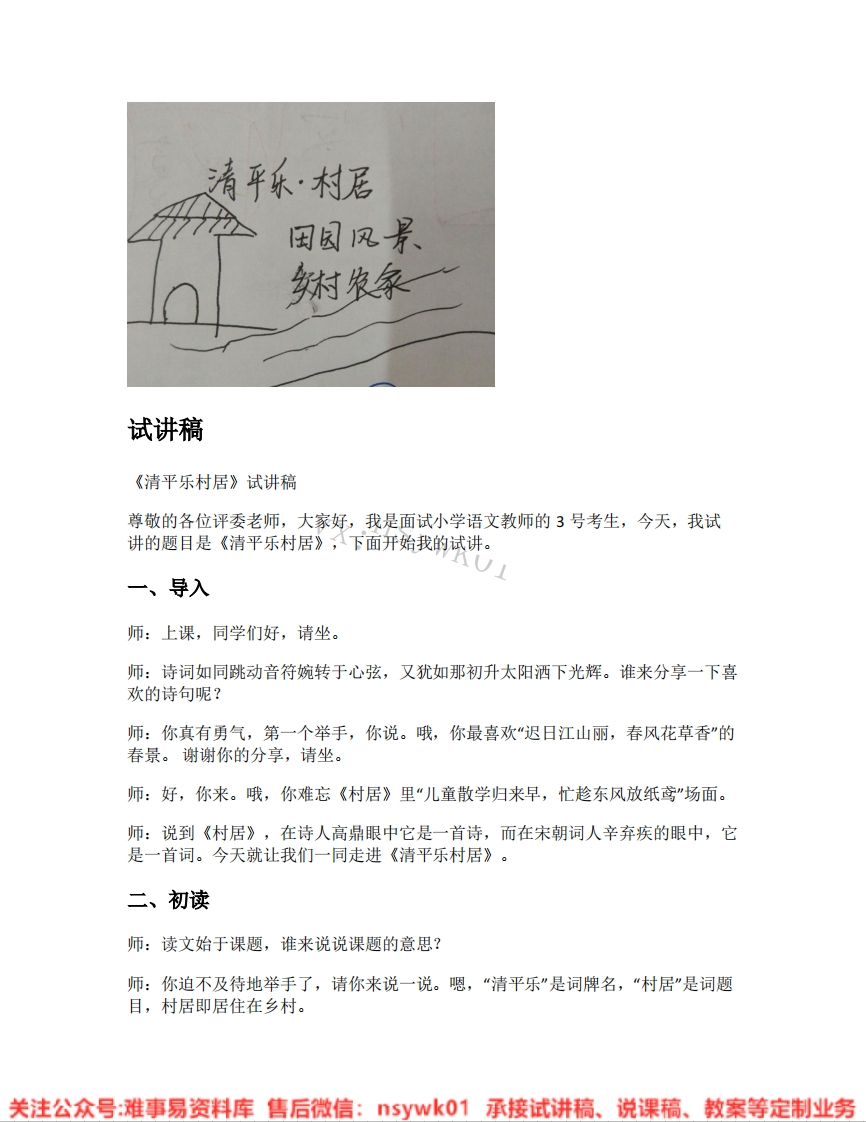 清平乐·村居
田园风景
乡村农家
试讲稿
《清平乐村居》试讲稿
尊敬的各位评委老师，大家好，我是面试小学语文教师的 3 号考生，今天，我试
讲的题目是《清平乐村居》，下面开始我的试讲。
一、导入
师：上课，同学们好，请坐。
师：诗词如同跳动音符婉转于心弦，又犹如那初升太阳洒下光辉。谁来分享一下喜
欢的诗句呢？
师：你真有勇气，第一个举手，你说。哦，你最喜欢“迟日江山丽，春风花草香”的
春景。 谢谢你的分享，请坐。
师：好，你来。哦，你难忘《村居》里“儿童散学归来早，忙趁东风放纸鸢”场面。
师：说到《村居》，在诗人高鼎眼中它是一首诗，而在宋朝词人辛弃疾的眼中，它
是一首词。今天就让我们一同走进《清平乐村居》。
二、初读
师：读文始于课题，谁来说说课题的意思？
师：你迫不及待地举手了，请你来说一说。嗯，“清平乐”是词牌名，“村居”是词题
目，村居即居住在乡村。
关注公众号:难事易资料库 售后微信：nsywk01 承接试讲稿、说课稿、教案等定制业务